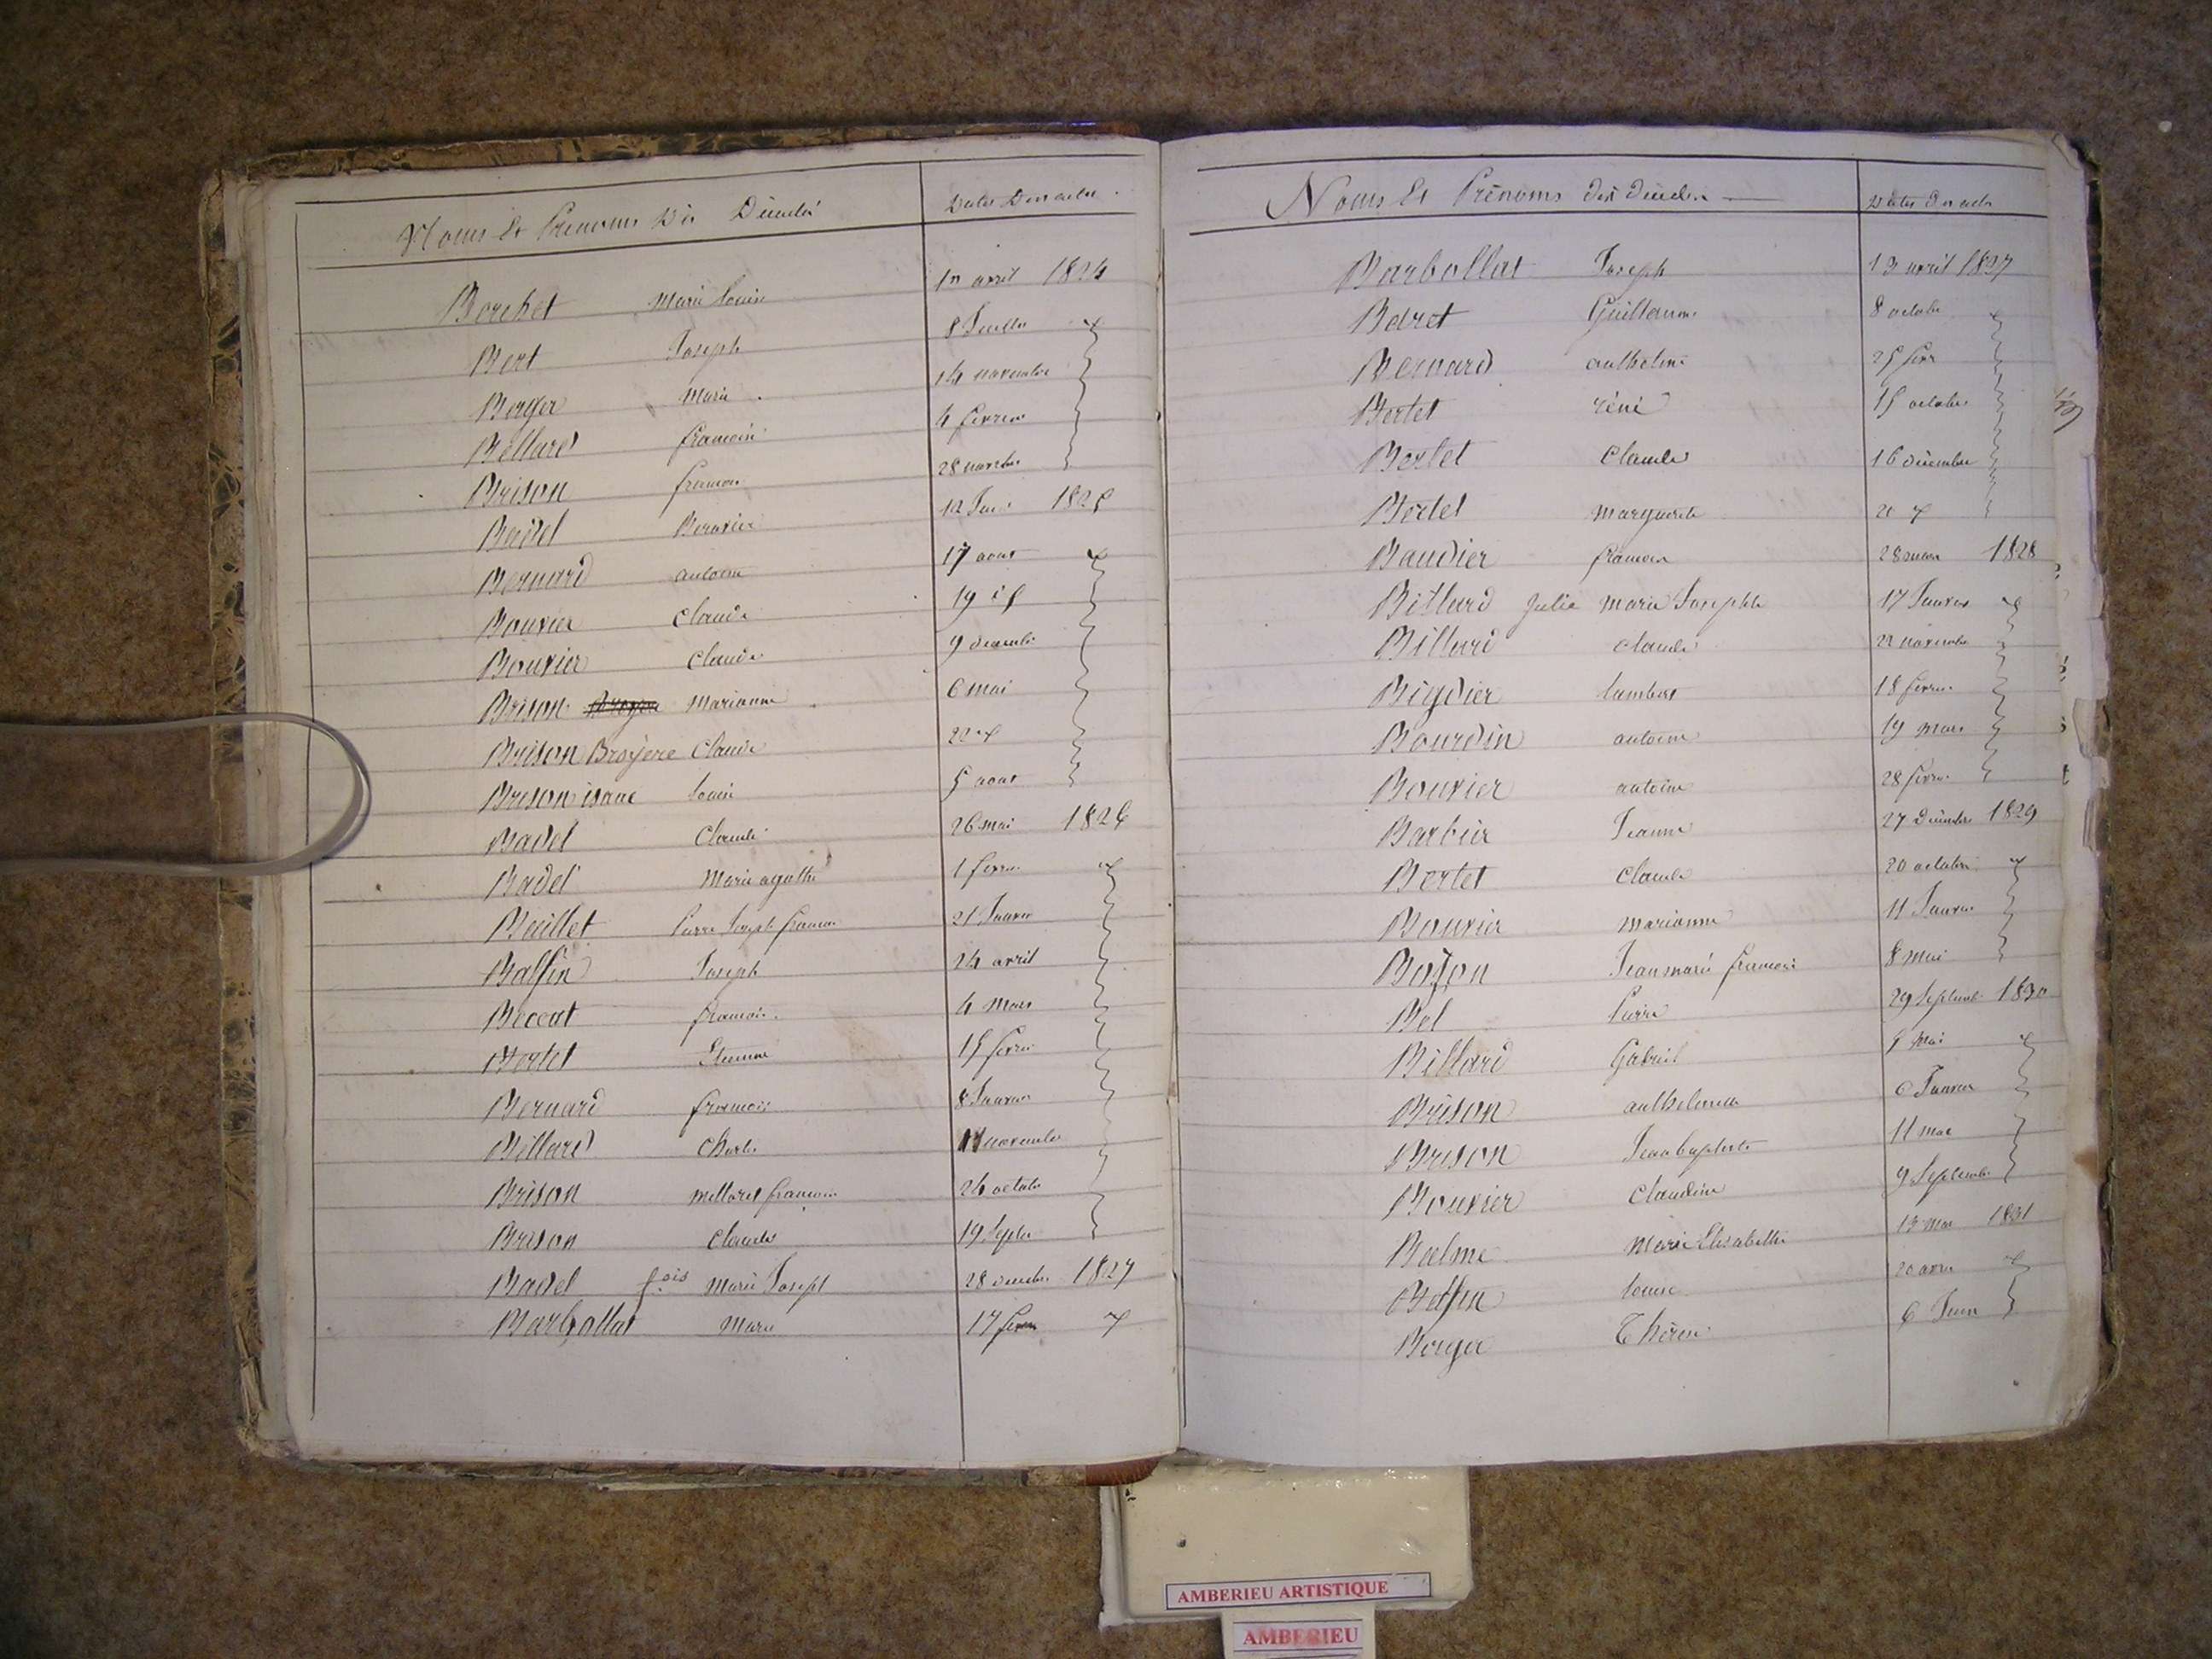 Noms Et Prénoms Des Décédés Dates Des actes
Borchet Marie Louise 1er avril 1824
Bert Joseph 8 Juillet
Berger Marie 14 novembre
Billard francois 4 fevrier
Brison francois 28 novembre
Badel 12 Juin 1825
Bernard antoine 17 aout
Bouvier Claude 19 id
Bouvier Claude 9 decembre
Brison Marianne 6 mai
Brison Broyere Claude 22
Brison isaac Louis 5 aout
Badel Claude 26 mai 1826
Badel Marie agathe 1 fevrier
Beillet Pierre Joseph francois 21 Janvier
Balfin Joseph 24 avril
Beccat francois 4 Mars
Bertet Etienne 15 fevrier
Bernard francois 8 Janvier
Billard Charles novembre
Brison millaret francois 24 octobre
Brison Claude 19 Septbre
Badel fois Marie Joseph 28 decembre 1827
Barbollat Marie 17 fevrier
Noms Et Prénoms des décédés Dates des actes
Barbollat Joseph 13 avril 1827
Beret Guillaume 8 octobre
Bernard anthelme 25 fevr
Bertet réné 15 octobre
Bertet Claude 16 décembre
Bertet Marguerite 21
Baudier francois 28 mars 1828
Billard Julie Marie Josephte 17 Janvier
Billard claude 22 novembre
Bigdier Lambert 18 fevrier
Bourdin antoine 19 mars
Bouvier antoine 28 fevrier
Barbier Jeanne 27 Décembre 1829
Bertet Claude 20 octobre
Bouvier Marianne 11 Janvier
Bozon Jean marie francois 8 mai
Bel Pierre 29 Septembre 1830
Billard Gabriel mai
Brison anthelmette 6 Janvier
Brison Jean baptiste 11 mai
Bouvier Claudine 9 Septembre
Balme Marie Elisabeth 13 Mai 1831
Louise 20 avril
Berger Thérèse 6 Juin
AMBERIEU ARTISTIQUE
AMBERIEU